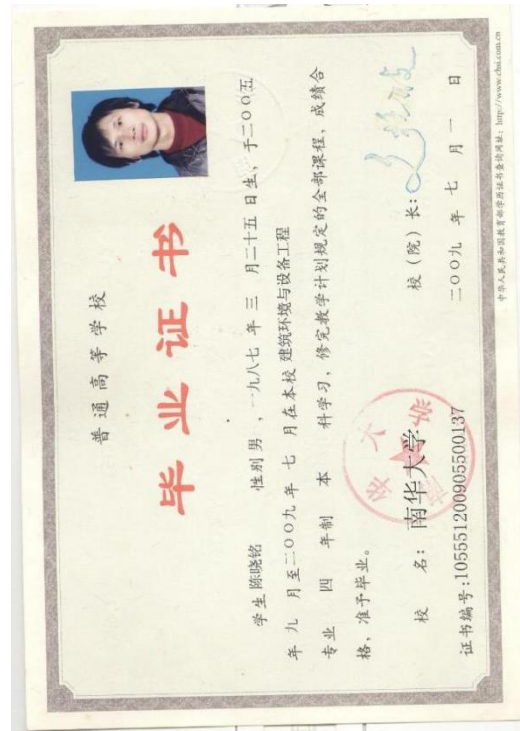 普通高等学校
毕业证书
学生 陈晓铭 性别 男 ，一九八七 年 三 月二十五 日生，于二〇〇五
年 九 月至二〇〇九 年 七 月在本校 建筑环境与设备工程
专业 四 年制 本 科学习，修完教学计划规定的全部课程，成绩合
格，准予毕业。
校 名： 南华大学 校（院）长：
证书编号：105551200905500137 二〇〇九 年 七 月 一 日
中华人民共和国教育部学历证书查询网址：http://www.chsi.com.cn